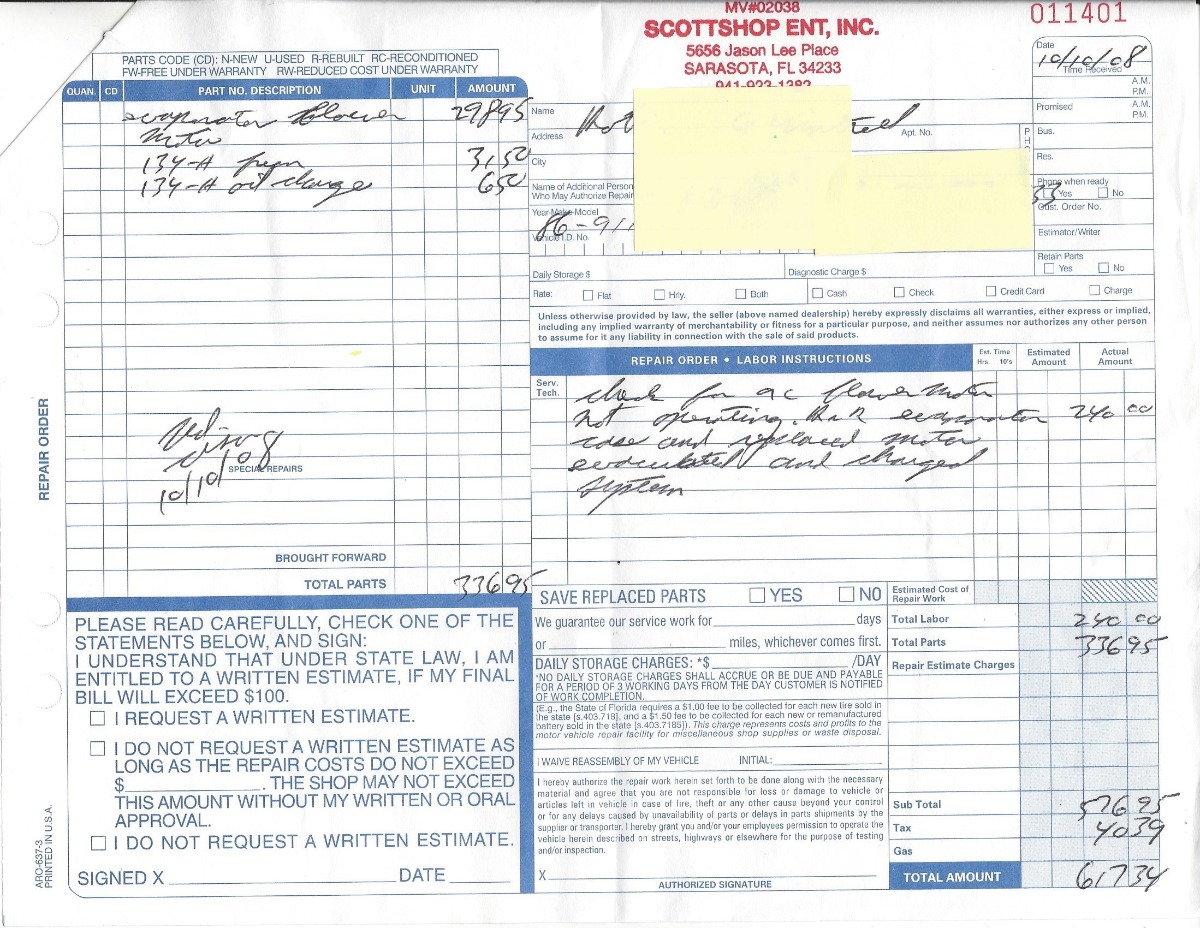 MV#02038
SCOTTSHOP ENT, INC.
5656 Jason Lee Place
SARASOTA, FL 34233
941-923-1382
011401
PARTS CODE (CD): N-NEW U-USED R-REBUILT RC-RECONDITIONED
FW-FREE UNDER WARRANTY RW-REDUCED COST UNDER WARRANTY
QUAN. CD PART NO. DESCRIPTION UNIT AMOUNT
evaporator Blower 298 95
motor
134-A freon 31 50
134-A oil charge 6 50
10/10/08
SPECIAL REPAIRS
BROUGHT FORWARD
TOTAL PARTS 336 95
REPAIR ORDER
ARO-637-3
PRINTED IN U.S.A.
PLEASE READ CAREFULLY, CHECK ONE OF THE
STATEMENTS BELOW, AND SIGN:
I UNDERSTAND THAT UNDER STATE LAW, I AM
ENTITLED TO A WRITTEN ESTIMATE, IF MY FINAL
BILL WILL EXCEED $100.
I REQUEST A WRITTEN ESTIMATE.
I DO NOT REQUEST A WRITTEN ESTIMATE AS
LONG AS THE REPAIR COSTS DO NOT EXCEED
$ . THE SHOP MAY NOT EXCEED
THIS AMOUNT WITHOUT MY WRITTEN OR ORAL
APPROVAL.
I DO NOT REQUEST A WRITTEN ESTIMATE.
SIGNED X DATE
Date
10/10/08
Time Received
A.M.
P.M.
Name
Promised
A.M.
P.M.
Address
Apt. No.
Bus.
City
Res.
Name of Additional Person
Who May Authorize Repair
Phone when ready
Yes No
Year-Make-Model
86-911
Cust. Order No.
Vehicle I.D. No.
Estimator/Writer
Retain Parts
Yes No
Daily Storage $ Diagnostic Charge $
Rate: Flat Hrly. Both Cash Check Credit Card Charge
Unless otherwise provided by law, the seller (above named dealership) hereby expressly disclaims all warranties, either express or implied,
including any implied warranty of merchantability or fitness for a particular purpose, and neither assumes nor authorizes any other person
to assume for it any liability in connection with the sale of said products.
REPAIR ORDER • LABOR INSTRUCTIONS Est. Time Hrs. 10's Estimated Amount Actual Amount
Serv. Tech.
check for ac blower motor
not operating. R&R evaporator 240 00
case and replaced motor
evacuated and charged
system
SAVE REPLACED PARTS YES NO
Estimated Cost of
Repair Work
We guarantee our service work for days
Total Labor 240 00
or miles, whichever comes first.
Total Parts 336 95
DAILY STORAGE CHARGES: *$ /DAY
Repair Estimate Charges
*NO DAILY STORAGE CHARGES SHALL ACCRUE OR BE DUE AND PAYABLE
FOR A PERIOD OF 3 WORKING DAYS FROM THE DAY CUSTOMER IS NOTIFIED
OF WORK COMPLETION.
(E.g., the State of Florida requires a $1.00 fee to be collected for each new tire sold in
the state [s.403.718], and a $1.50 fee to be collected for each new or remanufactured
battery sold in the state [s.403.7185]). This charge represents costs and profits to the
motor vehicle repair facility for miscellaneous shop supplies or waste disposal.
I WAIVE REASSEMBLY OF MY VEHICLE INITIAL:
I hereby authorize the repair work herein set forth to be done along with the necessary
material and agree that you are not responsible for loss or damage to vehicle or
articles left in vehicle in case of fire, theft or any other cause beyond your control
or for any delays caused by unavailability of parts or delays in parts shipments by the
supplier or transporter. I hereby grant you and/or your employees permission to operate the
vehicle herein described on streets, highways or elsewhere for the purpose of testing
and/or inspection.
Sub Total 576 95
Tax 40 39
Gas
X
AUTHORIZED SIGNATURE
TOTAL AMOUNT 617 34